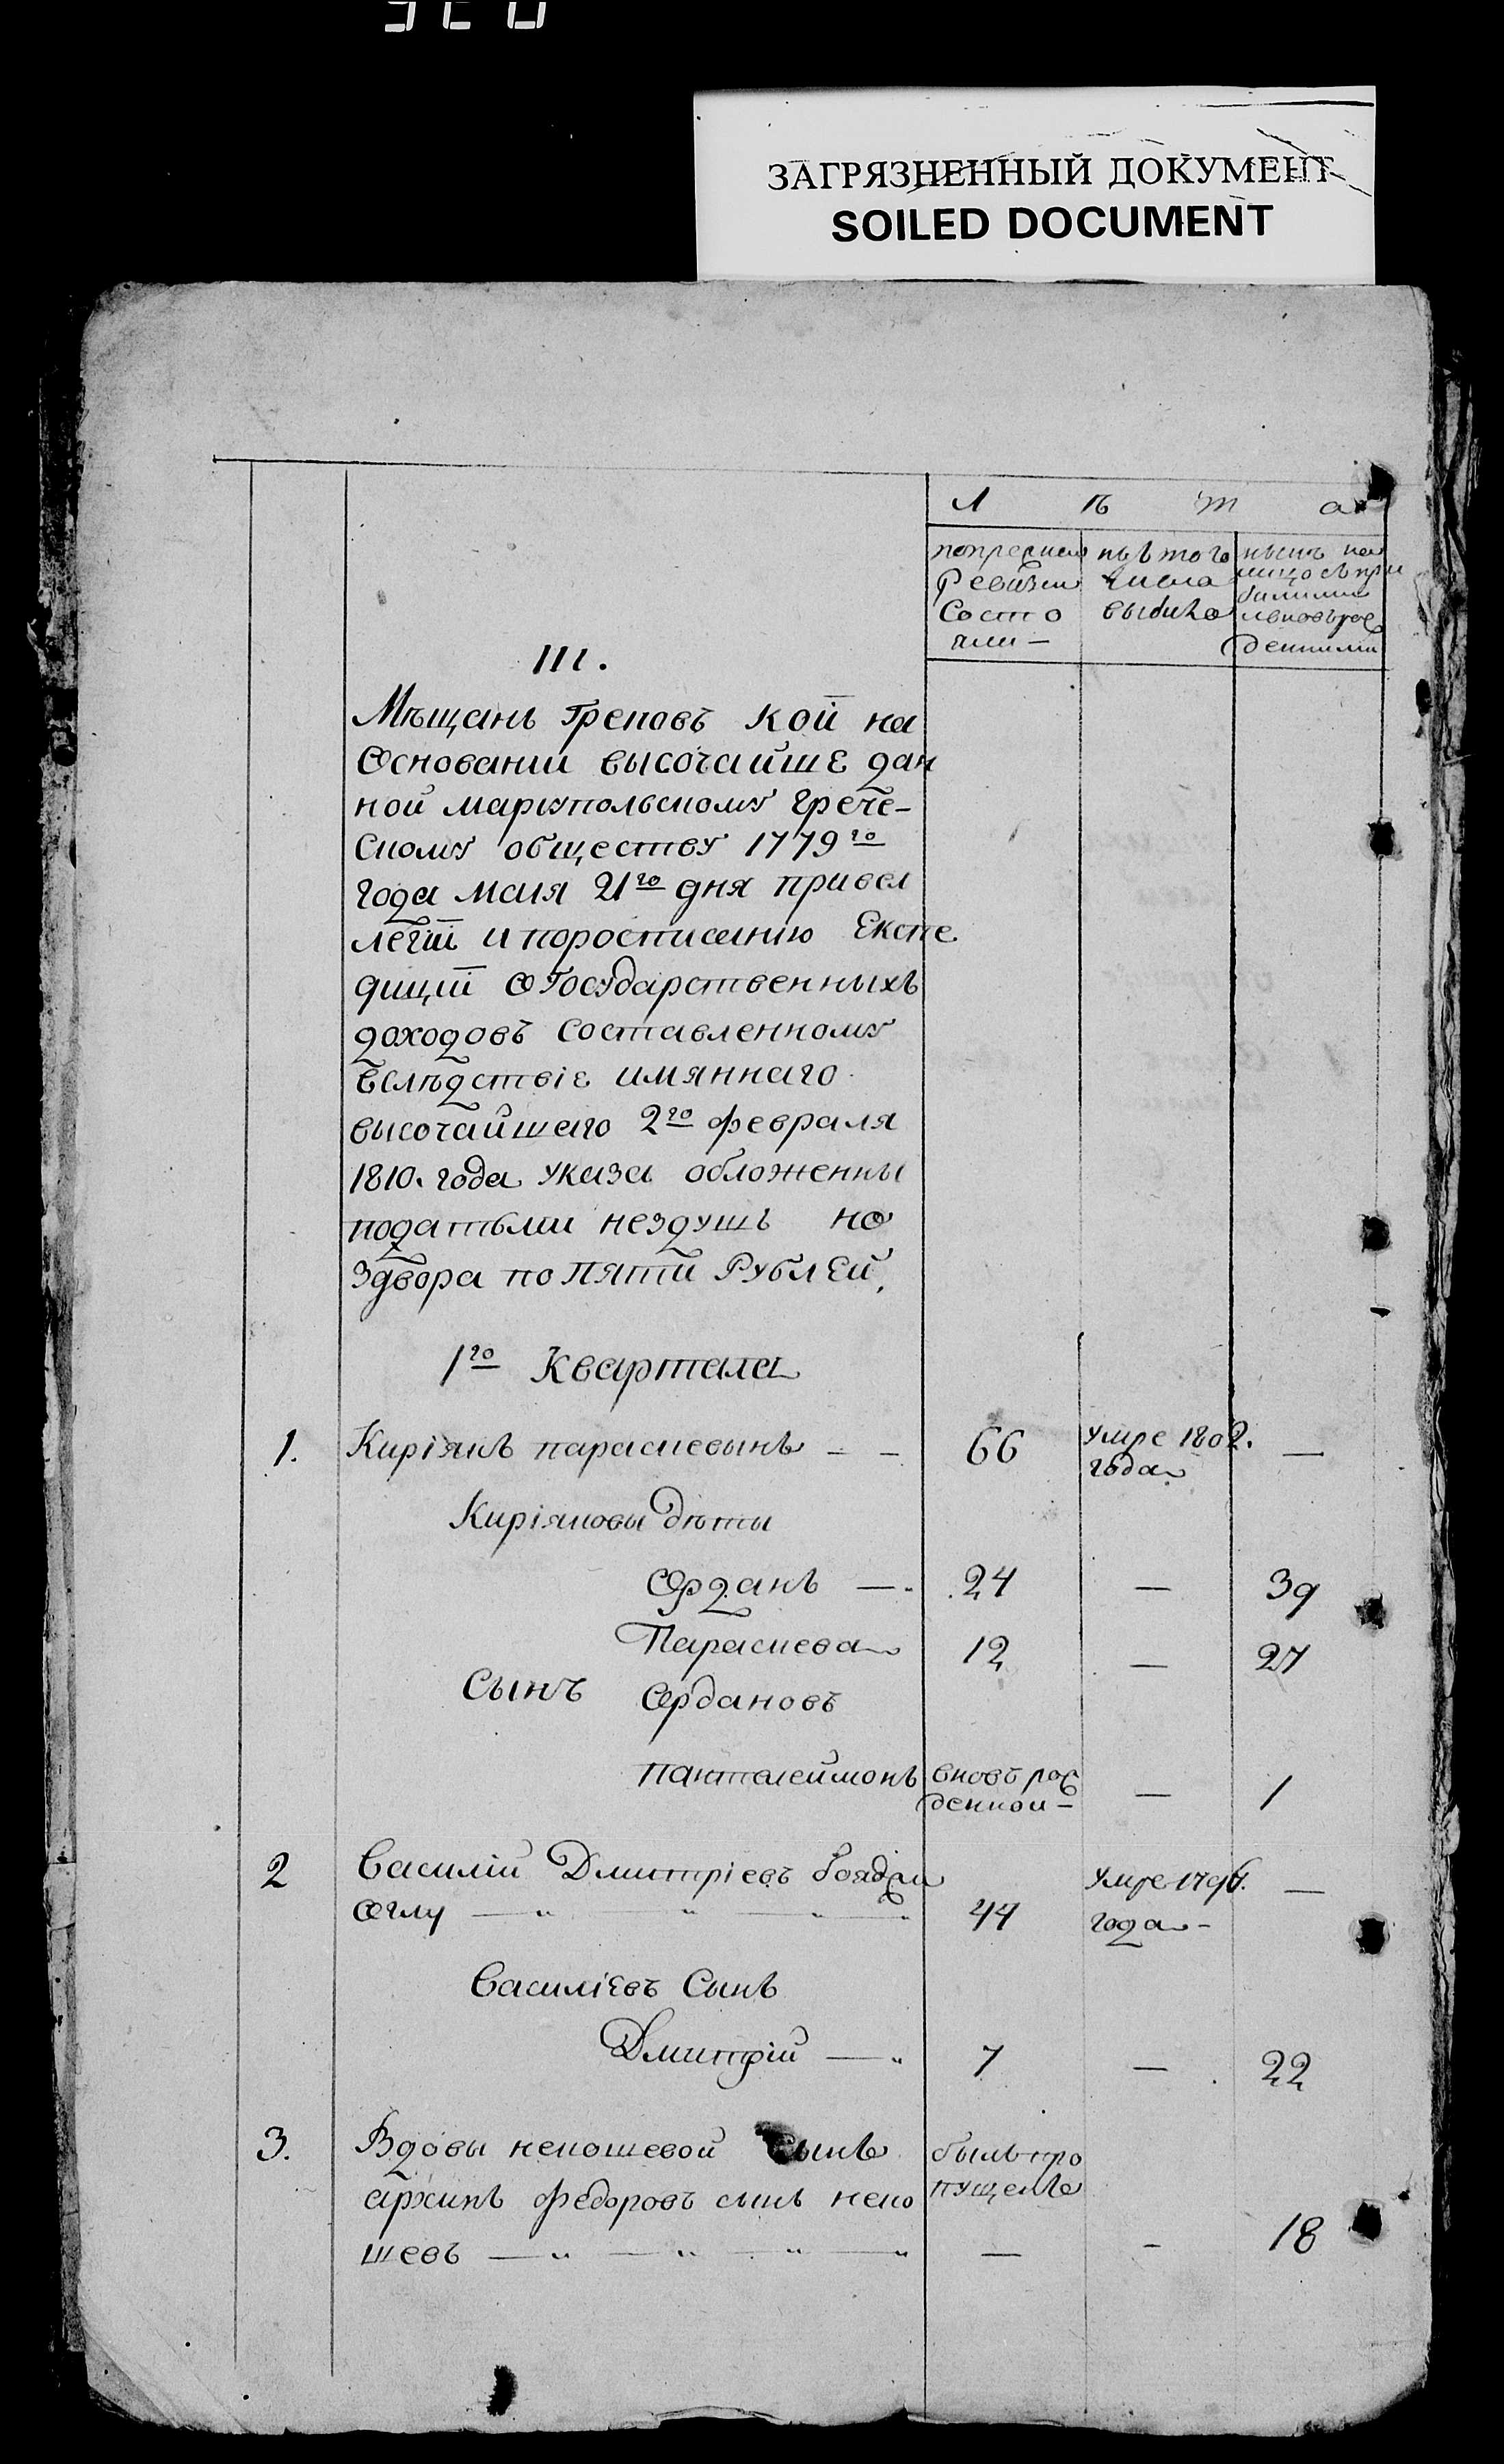 ЗАГРЯЗНЕННЫЙ ДОКУМЕНТ
SOILED DOCUMENT
Л ѣ т а
попрежней
Ревизіи
Состо
яли —
изъ того
числа
выбило
нынѣ на
лицо съ при
былыми
и вновь рож
денными
III.
Мѣщанъ Грековъ кои на
Основаніи высочайше дан
ной мариупольскому грече-
скому обществу 1779го
года Маия 21го дня привел
легіи и поросписанію Експе
диціи о Государственныхъ
доходовъ составленному
вслѣдствіе имяннаго
высочайшаго 2го февраля
1810. года указа обложенны
податьми нездушъ но
здвора по пяти Рублей,
1го Квартала
1. Киріякъ параскевынъ — — 66 умре 1802. —
года
Киріяковы дѣти
Орданъ — 24 — 39
Параскева 12 — 27
Сынъ Ордановъ
пантелеймонъ вновь рож — 1
денной —
2 Василій Дмитріевъ бояджи умре 1796. —
оглу — „ — „ — „ — „ 44 года —
Василіевъ Сынъ
Дмитрій — „ 7 — 22
3. Вдовы кекошевой Сынъ былъ про
архипъ федоровъ сынъ кеко пущенъ
шевъ — „ — „ — „ — „ — — 18